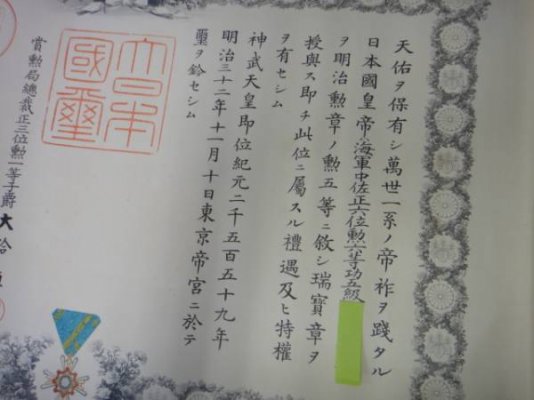 天佑ヲ保有シ萬世一系ノ帝祚ヲ踐タル
日本國皇帝海軍中佐正六位勲六等功五級
ヲ明治勲章ノ勲五等ニ敘シ瑞寶章ヲ
授與ス即チ此位ニ屬スル禮遇及ヒ特權
ヲ有セシム
神武天皇即位紀元二千五百五十九年
明治三十二年十一月十日東京帝宮ニ於テ
璽ヲ鈐セシム
大日本國璽
賞勲局總裁正三位勲一等子爵大給恒